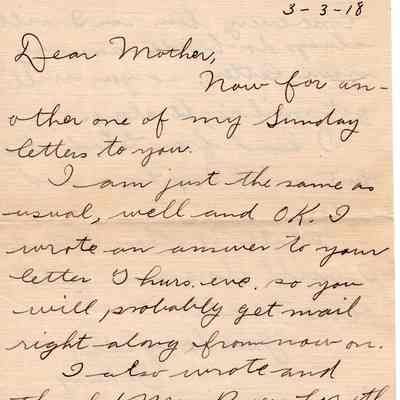 3-3-18
Dear Mother,
Now for an-
other one of my Sunday
letters to you.
I am just the same as
usual, well and OK. I
wrote an answer to your
letter Thurs. eve. so you
will probably get mail
right along from now on.
I also wrote and